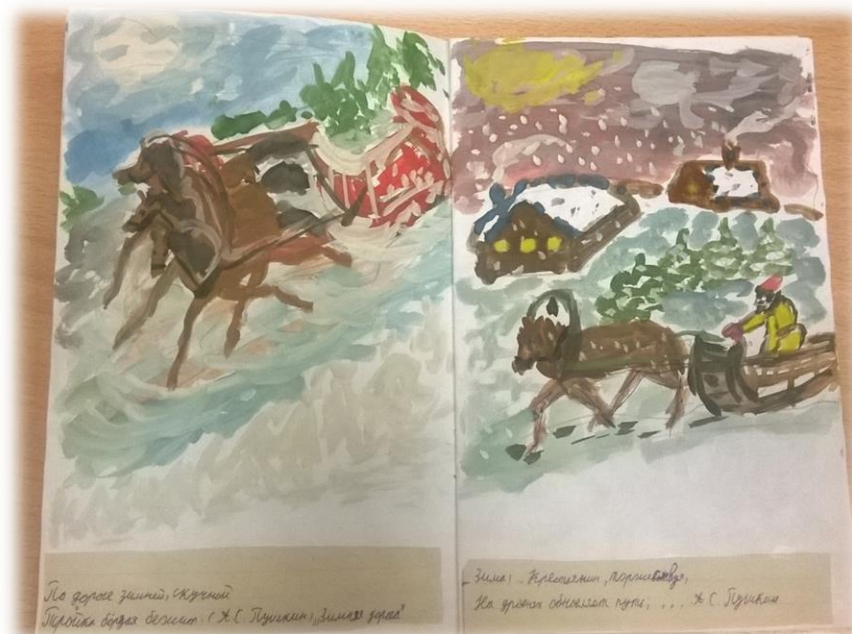 По дороге зимней, скучной
Тройка борзая бежит. (А.С. Пушкин „Зимняя дорога"
Зима!.. Крестьянин, торжествуя,
На дровнях обновляет путь; ... А С. Пушкин